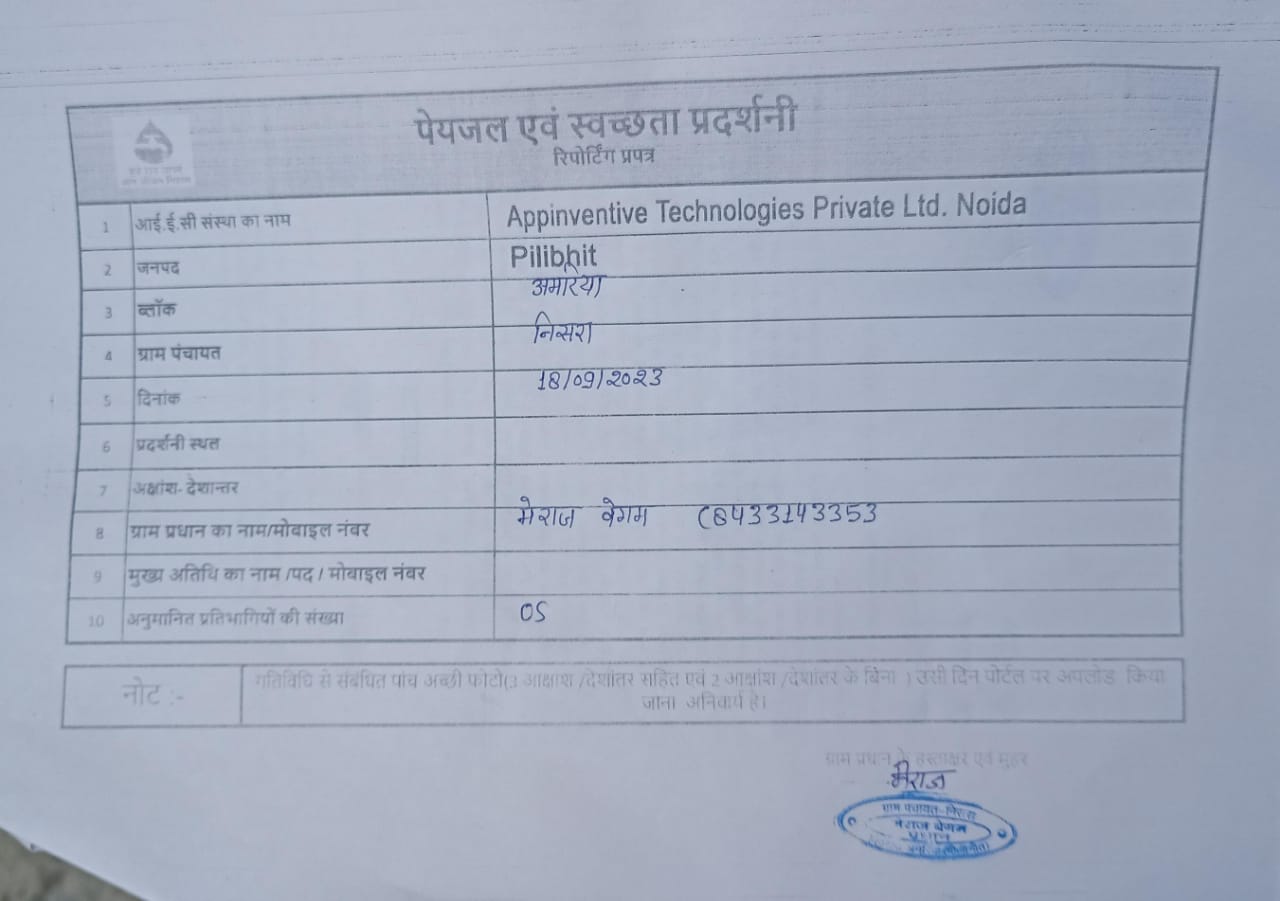 पेयजल एवं स्वच्छता प्रदर्शनी
रिपोर्टिंग प्रपत्र
1 आई.ई.सी संस्था का नाम Appinventive Technologies Private Ltd. Noida
2 जनपद Pilibhit
3 ब्लॉक अमरिया
4 ग्राम पंचायत निसरा
5 दिनांक 18/09/2023
6 प्रदर्शनी स्थल
7 अक्षांश- देशान्तर
8 ग्राम प्रधान का नाम/मोबाइल नंबर मेराज वेगम
9 मुख्य अतिथि का नाम /पद / मोबाइल नंबर
10 अनुमानित प्रतिभागियों की संख्या 05
नोट :- गतिविधि से संबंधित पांच अच्छी फोटो(3 आक्षाश /देशांतर सहित एवं 2 आक्षांश /देशांतर के बिना ) उसी दिन पोर्टल पर अपलोड किया
जाना अनिवार्य है।
ग्राम प्रधान के हस्ताक्षर एवं मुहर
मेराज
ग्राम पंचायत-
मेराज बेगम
प्रधान